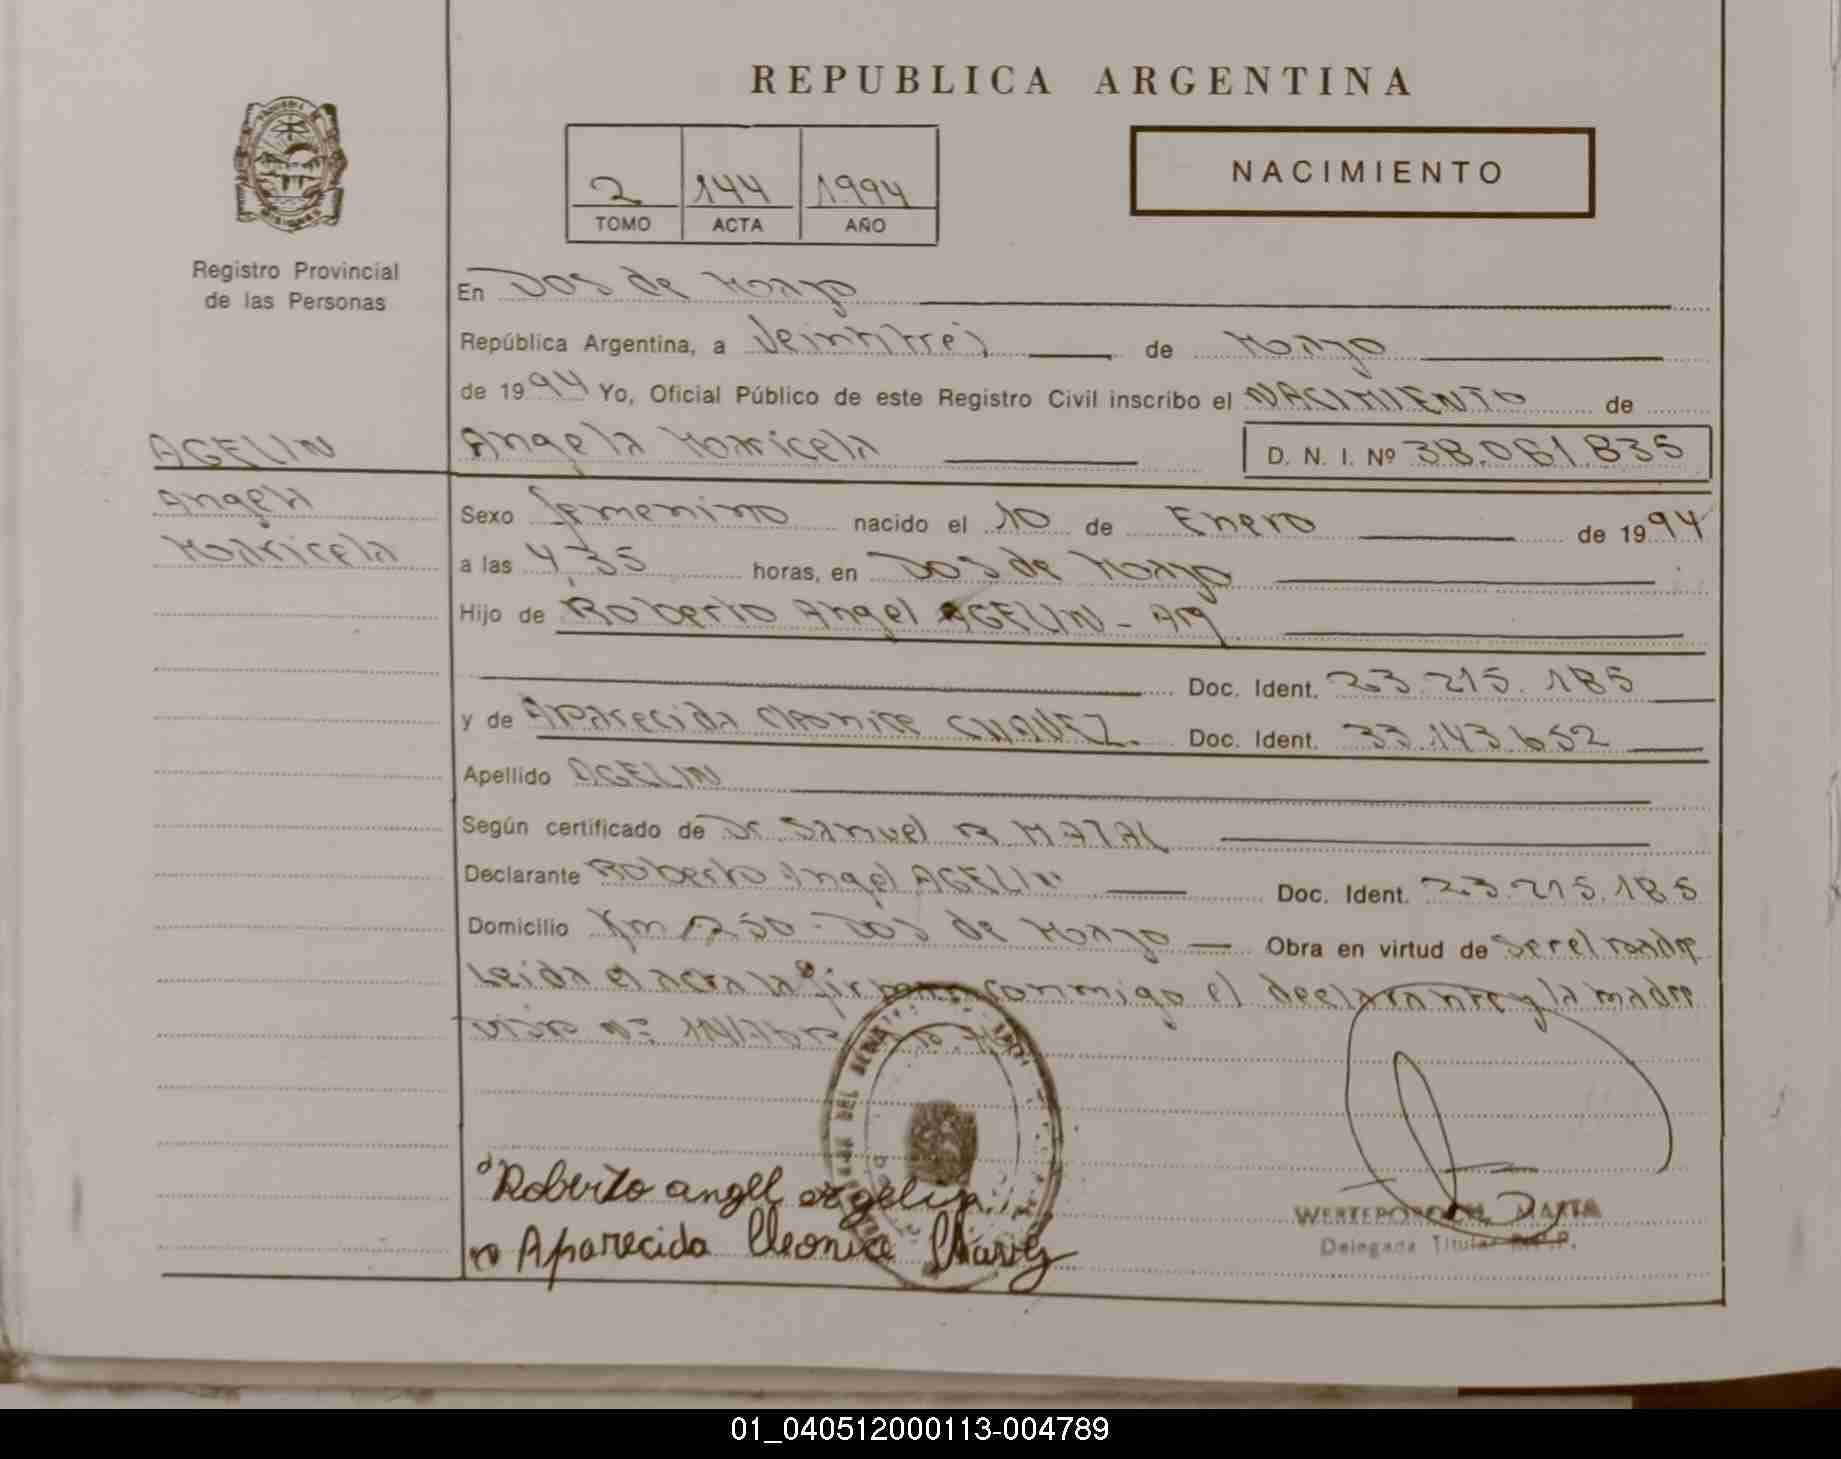 REPUBLICA ARGENTINA
NACIMIENTO
2 144 1994
TOMO ACTA AÑO
Registro Provincial
de las Personas
En Dos de Mayo
República Argentina, a Veintitres de Mayo
de 1994 Yo, Oficial Público de este Registro Civil inscribo el NACIMIENTO de
AGELIN
Angela Maricela
D. N. I. Nº 38.061.835
Angela
Maricela
Sexo femenino nacido el 10 de Enero de 1994
a las 4,35 horas, en Dos de Mayo
Hijo de Roberto Angel AGELIN - Arg
Doc. Ident. 23.215.185
y de Aparecida Cleonice CHAVEZ. Doc. Ident. 33.143.652
Apellido AGELIN
Según certificado de Dr Samuel
Declarante Roberto Angel AGELIN Doc. Ident. 23.215.185
Domicilio Km - Dos de Mayo Obra en virtud de ser el padre
Leida el acta la firman conmigo el declarante y la madre
Roberto angel agelin
Aparecida Cleonice Chavez
MARTA
Delegada Titular
01_040512000113-004789